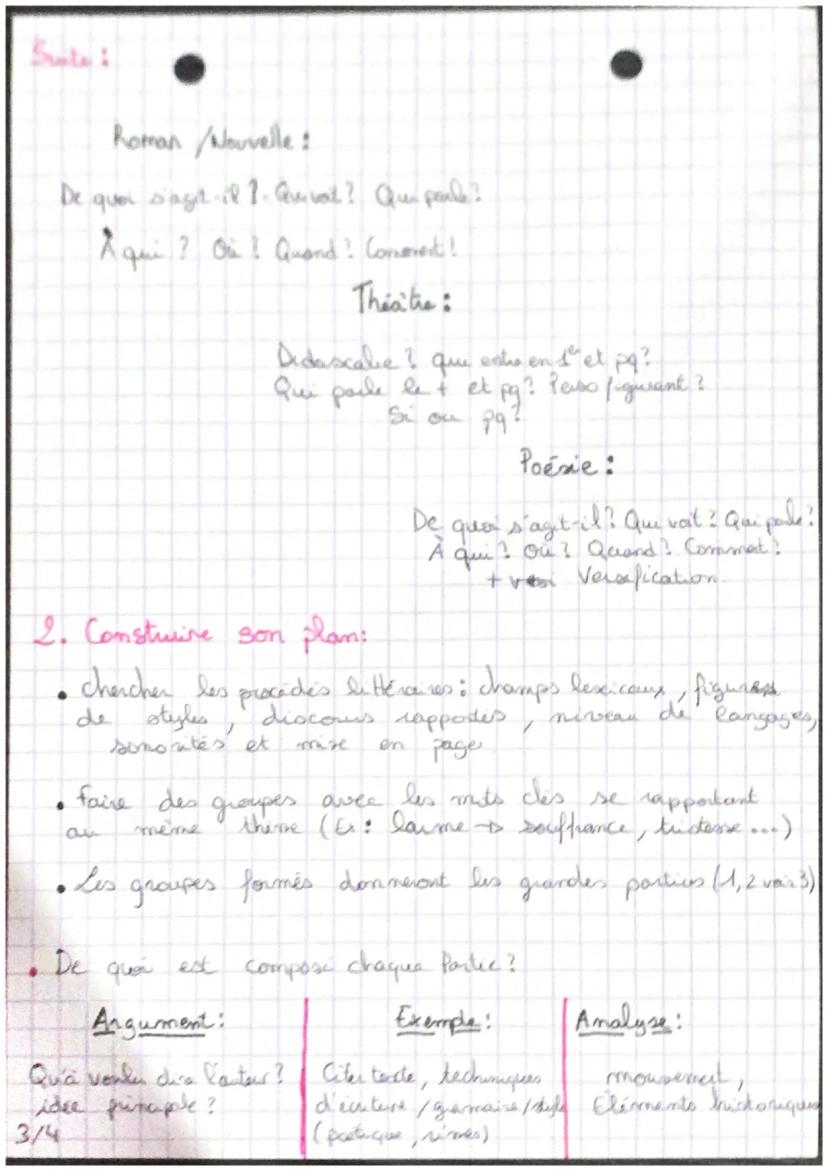 Suite :
Roman / Nouvelle :
De quoi s'agit-il ? Qui voit ? Qui parle ?
À qui ? Où ? Quand ? Comment ?
Théâtre :
Didascalie ? qui entre en 1er et pq ?
Qui parle le + et pq ? Perso figurant ?
Si oui pq ?
Poésie :
De quoi s'agit-il ? Qui voit ? Qui parle ?
À qui ? Où ? Quand ? Comment ?
+ Versification.
2. Construire son plan :
• chercher les procédés littéraires : champs lexicaux, figures
de styles, discours rapportés, niveau de langages,
sonorités et mise en page
• faire des groupes avec les mots clés se rapportant
au même thème (Ex : larme → souffrance, tristesse ...)
• Les groupes formés donneront les grandes parties (1, 2 voir 3)
• De quoi est composé chaque Partie ?
Argument : Exemple : Analyse :
Qu'a voulu dire l'auteur ? Citer texte, techniques mouvement,
idée principale ? d'écriture / grammaire / style Éléments historiques
3/4 (poétique, rimes)